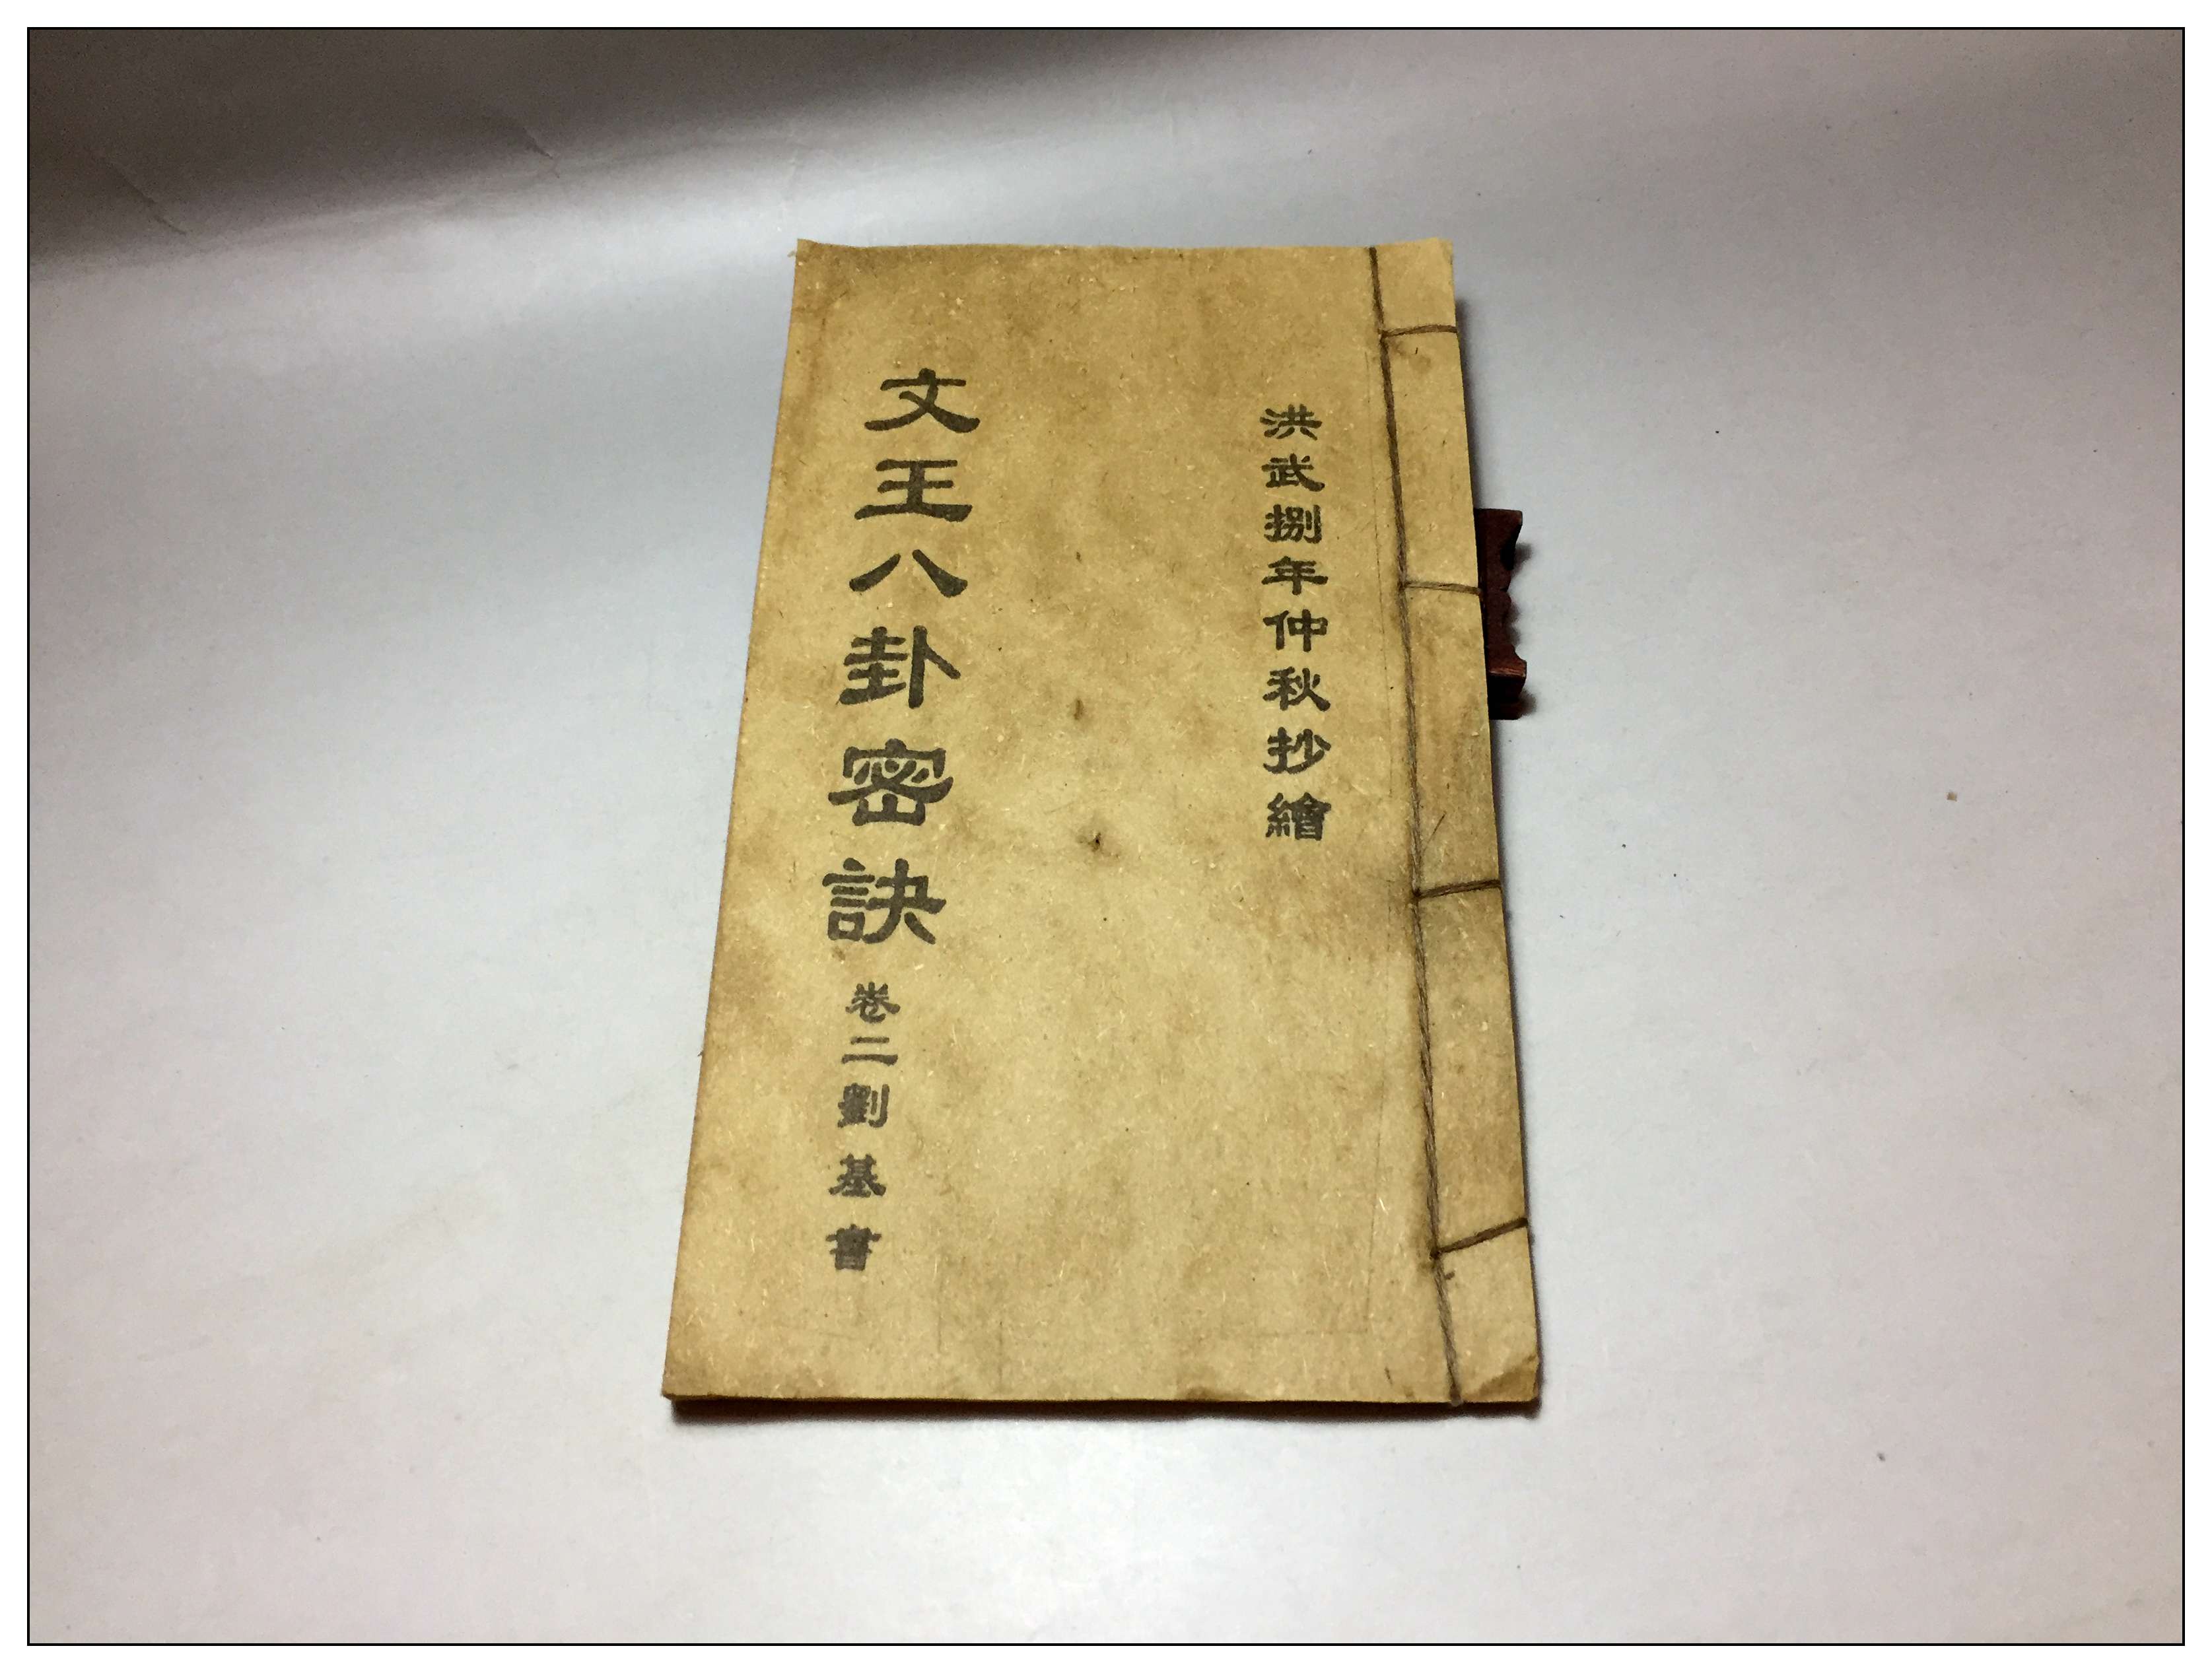 洪武捌年仲秋抄繪
文王八卦密訣 卷二劉基書